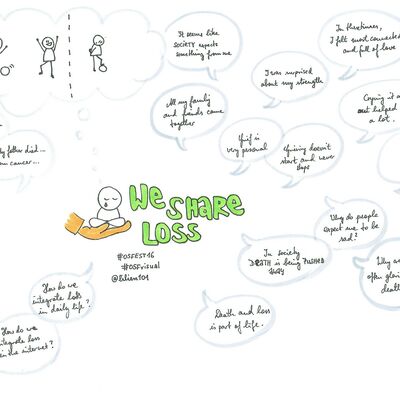 It seems like
SOCIETY expects
something from me
In these times,
I felt most connected
and full of love
I was surprised
about my strength
All my family
and friends came
together
Crying it out
helped
a lot.
Grief is
very personal
Grieving doesn't
start and never
stops
father died...
cancer...
WE
SHARE
LOSS
#OSFEST16
#OSFvisual
Why do people
expect me to be
sad?
In society
DEATH is being PUSHED
AWAY
Why
often
death
How do we
integrate loss
in daily life?
Death and loss
is part of life.
How do we
integrate loss
in the internet?